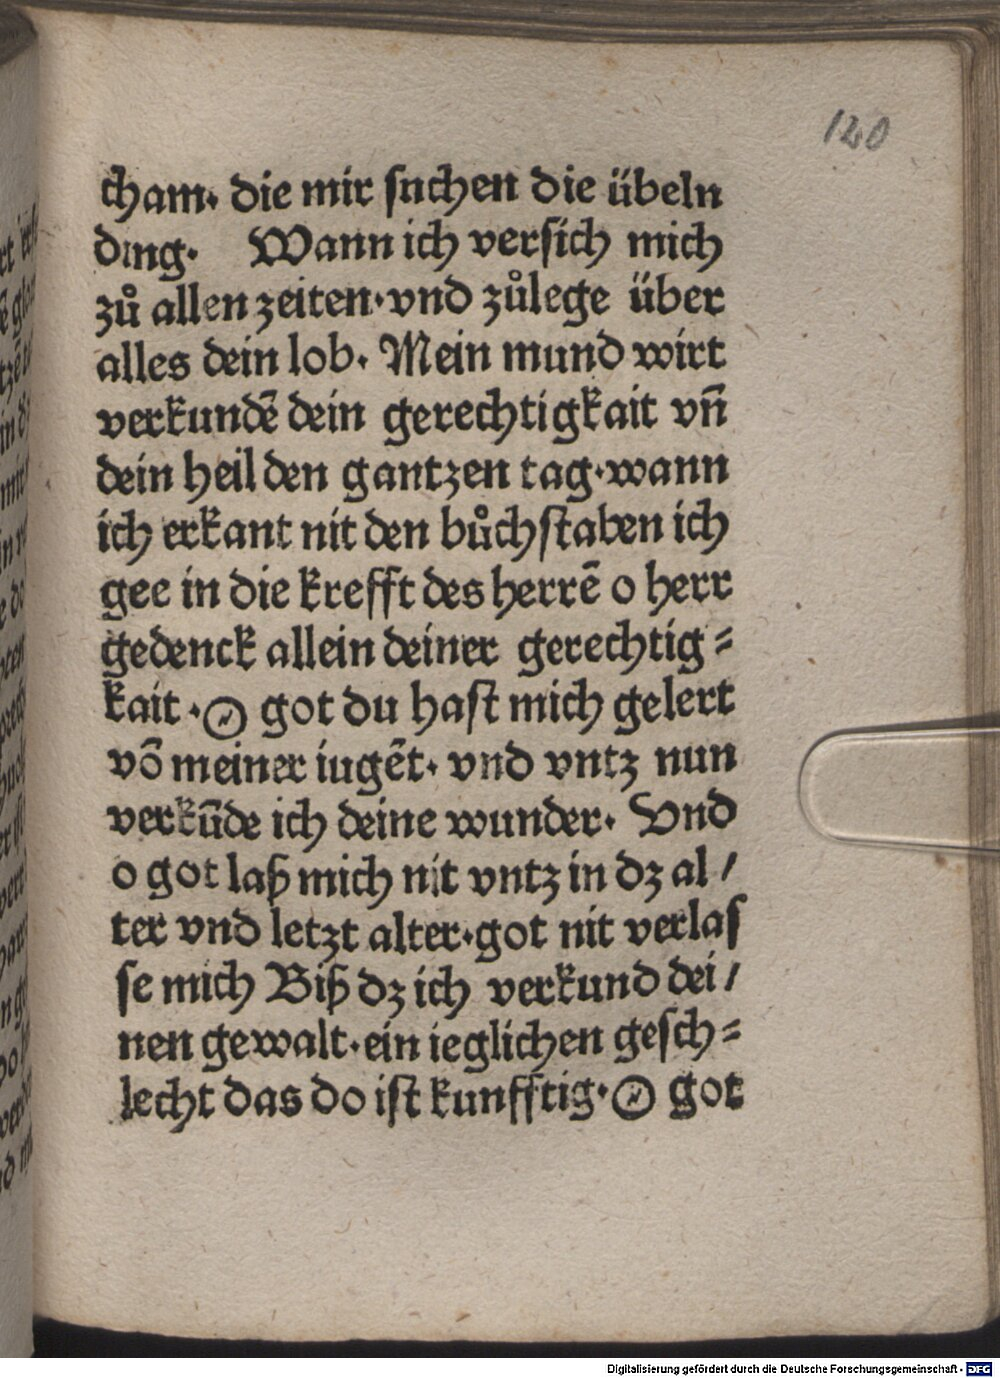 120
cham. die mir suchen die übeln
ding. Wann ich versich mich
zů allen zeiten·vnd zůlege über
alles dein lob. Mein mund wirt
verkundē dein gerechtigkait vn̄
dein heil den gantzen tag·wann
ich erkant nit den bůchstaben ich
gee in die krefft des herrē o herr
gedenck allein deiner gerechtig⸗
kait·O got du hast mich gelert
vō meiner iugēt· vnd vntz nun
verkūde ich deine wunder. Vnd
o got laß mich nit vntz in dz al/
ter vnd letzt alter·got nit verlas
se mich Biß dz ich verkund dei/
nen gewalt·ein ieglichen gesch⸗
lecht das do ist kunfftig·O got
Digitalisierung gefördert durch die Deutsche Forschungsgemeinschaft - DFG